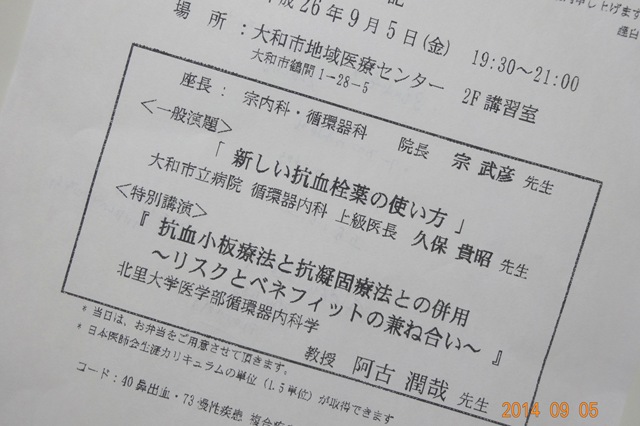 記
平成26年9月5日(金) 19:30～21:00
場 所：大和市地域医療センター 2F 講習室
大和市鶴間1－28－5
座長： 宗内科・循環器科 院長 宗 武彦 先生
＜一般演題＞
「 新しい抗血栓薬の使い方 」
大和市立病院 循環器内科 上級医長 久保 貴昭 先生
＜特別講演＞
『 抗血小板療法と抗凝固療法との併用
～リスクとベネフィットの兼ね合い～ 』
北里大学医学部循環器内科学
教授 阿古 潤哉 先生
* 当日は、お弁当をご用意させて頂きます。
* 日本医師会生涯カリキュラムの単位（1.5単位）が取得できます
コード：40 鼻出血・73 慢性疾患
2014 09 05